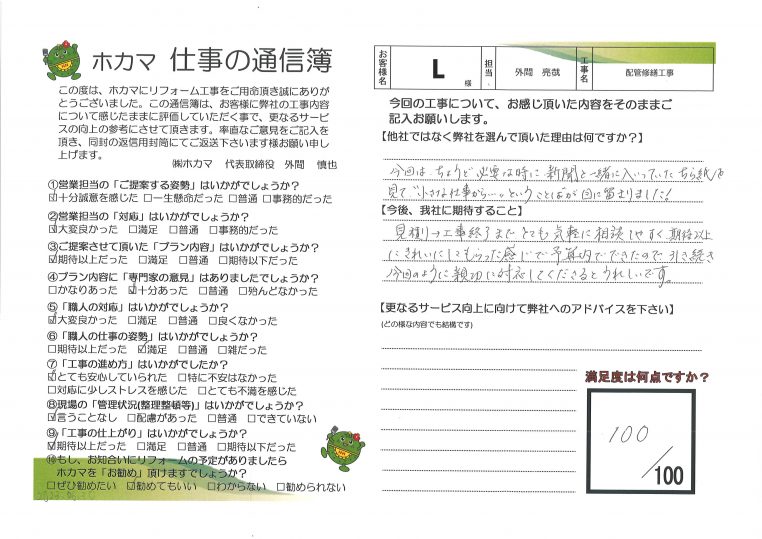 ホカマ 仕事の通信簿
この度は、ホカマにリフォーム工事をご用命頂き誠にありが
とうございました。この通信簿は、お客様に弊社の工事内容
について感じたままに評価していただく事で、更なるサービ
スの向上の参考にさせて頂きます。率直なご意見をご記入を
頂き、同封の返信用封筒にてご返送下さいます様お願い申し
上げます。
㈱ホカマ 代表取締役 外間 慎也
①営業担当の「ご提案する姿勢」はいかがでしょうか?
☑十分誠意を感じた □一生懸命だった □普通 □事務的だった
②営業担当の「対応」はいかがでしょうか?
☑大変良かった □満足 □普通 □事務的だった
③ご提案させて頂いた「プラン内容」はいかがでしょうか?
☑期待以上だった □満足 □普通 □期待以下だった
④プラン内容に「専門家の意見」はありましたでしょうか?
□かなりあった ☑十分あった □普通 □殆んどなかった
⑤「職人の対応」はいかがでしょうか?
☑大変良かった □満足 □普通 □良くなかった
⑥「職人の仕事の姿勢」はいかがでしょうか?
□期待以上だった ☑満足 □普通 □雑だった
⑦「工事の進め方」はいかがでしたか?
☑とても安心していられた □特に不安はなかった
□対応に少しストレスを感じた □とても不満を感じた
⑧現場の「管理状況(整理整頓等)」はいかがでしょうか?
☑言うことなし □配慮があった □普通 □できていない
⑨「工事の仕上がり」はいかがでしょうか?
☑期待以上だった □満足 □普通 □期待以下だった
⑩もし、お知合いにリフォームの予定がありましたら
ホカマを「お勧め」頂けますでしょうか?
□ぜひ勧めたい ☑勧めてもいい □わからない □勧められない
お客様名 L 様 担当 外間 亮哉 工事名 配管修繕工事
今回の工事について、お感じ頂いた内容をそのままご
記入お願いします。
【他社ではなく弊社を選んで頂いた理由は何ですか?】
今回は、ちょうど必要な時に新聞と一緒に入っていたちら紙を
見て"小さな仕事から…"ということばが目に留まりました!
【今後、我社に期待すること】
見積り→工事終了までとても気軽に相談しやすく、期待以上
にきれいにしてもらった感じで予算内でできたので引き続き
今回のように親切に対応してくださるとうれしいです。
【更なるサービス向上に向けて弊社へのアドバイスを下さい】
(どの様な内容でも結構です)
満足度は何点ですか?
100
/100